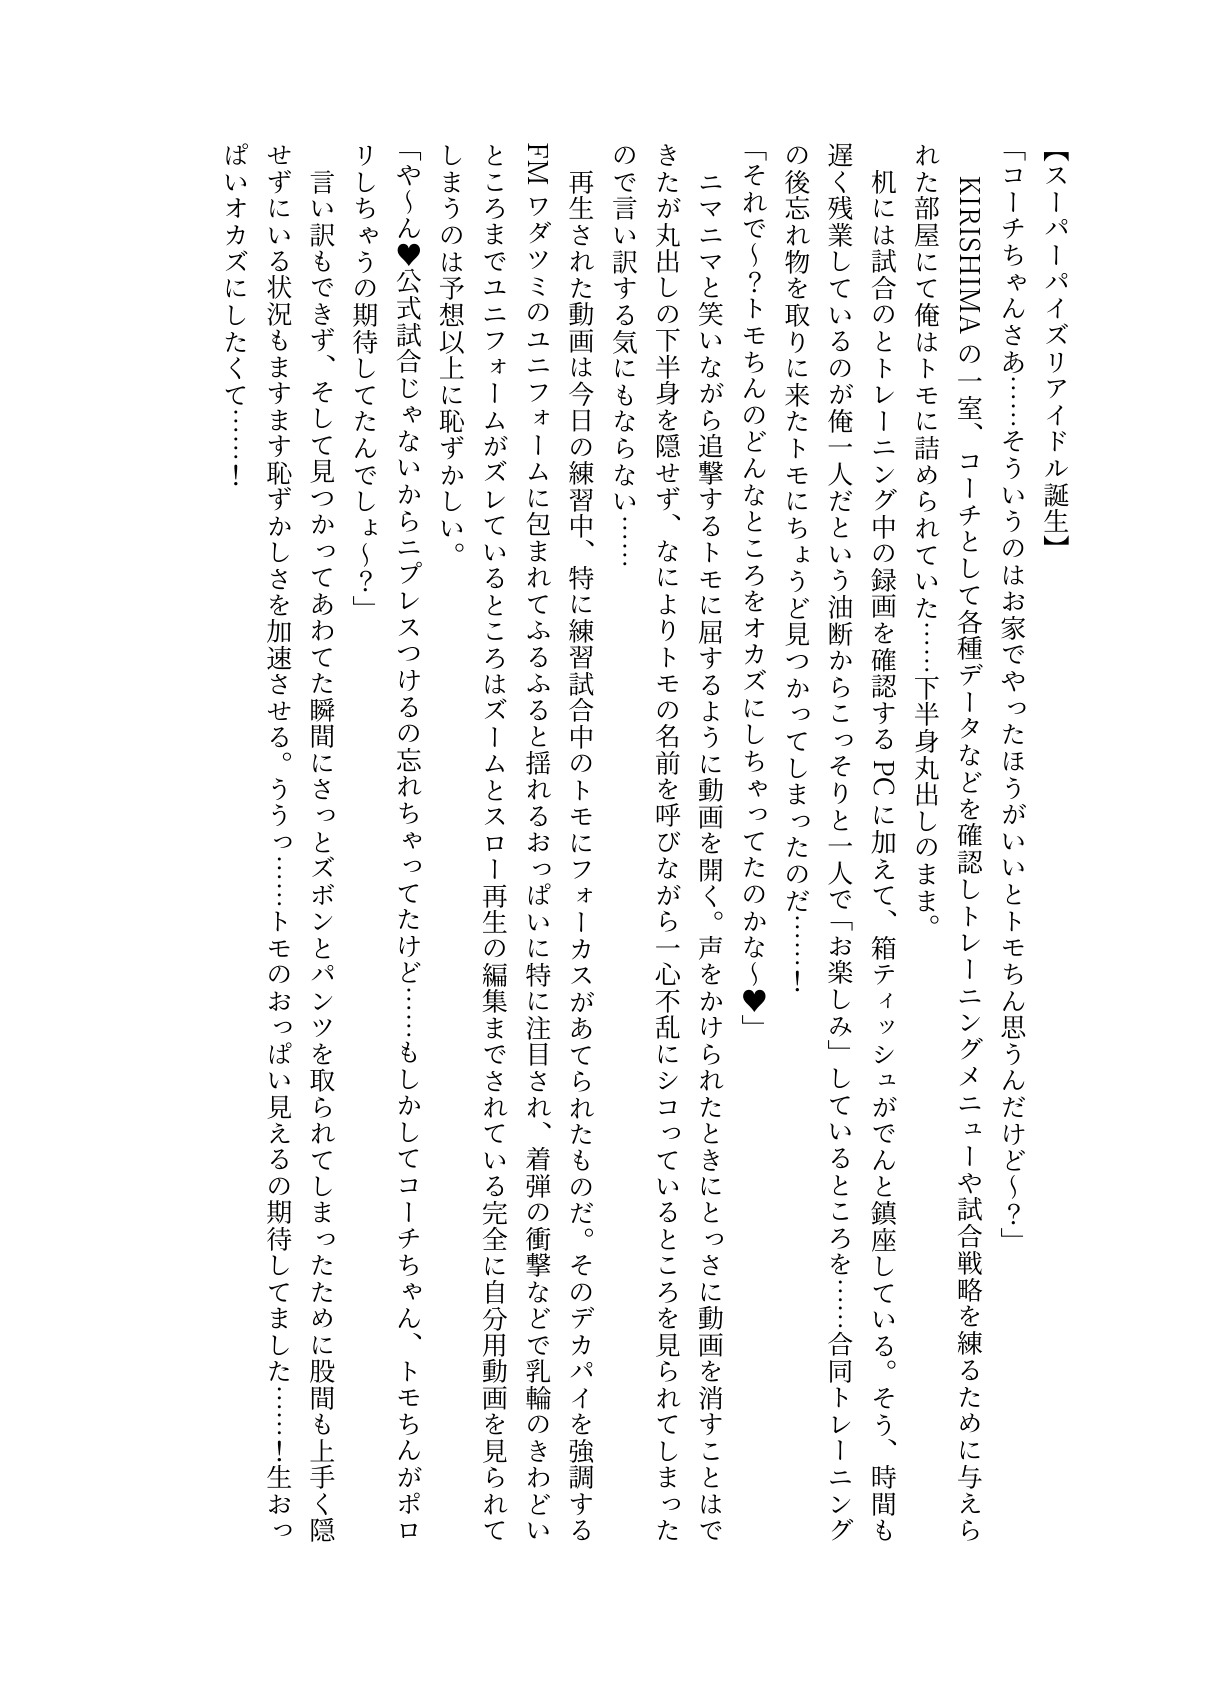 【スーパーパイズリアイドル誕生】
「コーチちゃんさあ……そういうのはお家でやったほうがいいとトモちん思うんだけど～？」
　KIRISHIMAの一室、コーチとして各種データなどを確認しトレーニングメニューや試合戦略を練るために与えら
れた部屋にて俺はトモに詰められていた……下半身丸出しのまま。
　机には試合のとトレーニング中の録画を確認するPCに加えて、箱ティッシュがでんと鎮座している。そう、時間も
遅く残業しているのが俺一人だという油断からこっそりと一人で「お楽しみ」しているところを……合同トレーニング
の後忘れ物を取りに来たトモにちょうど見つかってしまったのだ……！
「それで～？トモちんのどんなところをオカズにしちゃってたのかな～♥」
　ニマニマと笑いながら追撃するトモに屈するように動画を開く。声をかけられたときにとっさに動画を消すことはで
きたが丸出しの下半身を隠せず、なによりトモの名前を呼びながら一心不乱にシコっているところを見られてしまった
ので言い訳する気にもならない……
　再生された動画は今日の練習中、特に練習試合中のトモにフォーカスがあてられたものだ。そのデカパイを強調する
FMワダツミのユニフォームに包まれてふるふると揺れるおっぱいに特に注目され、着弾の衝撃などで乳輪のきわどい
ところまでユニフォームがズレているところはズームとスロー再生の編集までされている完全に自分用動画を見られて
しまうのは予想以上に恥ずかしい。
「や～ん♥公式試合じゃないからニプレスつけるの忘れちゃってたけど……もしかしてコーチちゃん、トモちんがポロ
リしちゃうの期待してたんでしょ～？」
　言い訳もできず、そして見つかってあわてた瞬間にさっとズボンとパンツを取られてしまったために股間も上手く隠
せずにいる状況もますます恥ずかしさを加速させる。ううっ……トモのおっぱい見えるの期待してました……！生おっ
ぱいオカズにしたくて……！